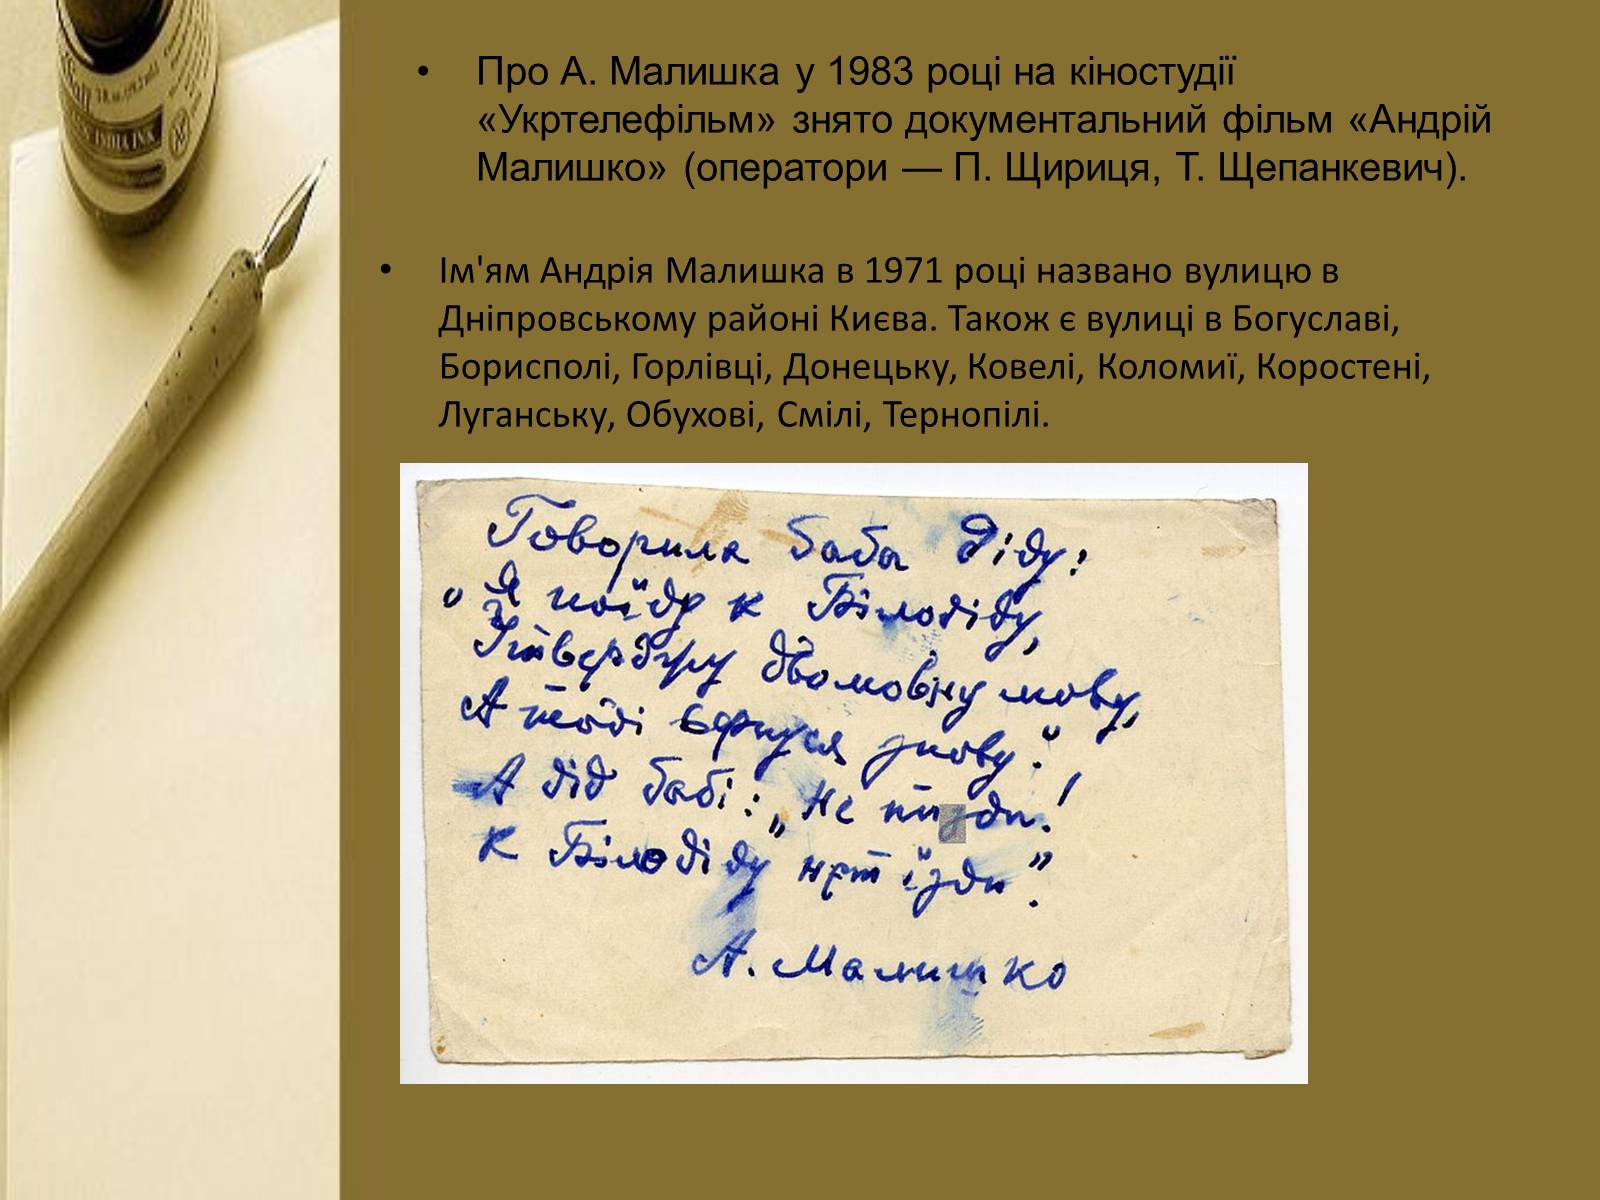 • Про А. Малишка у 1983 році на кіностудії
«Укртелефільм» знято документальний фільм «Андрій
Малишко» (оператори — П. Щириця, Т. Щепанкевич).
• Ім'ям Андрія Малишка в 1971 році названо вулицю в
Дніпровському районі Києва. Також є вулиці в Богуславі,
Борисполі, Горлівці, Донецьку, Ковелі, Коломиї, Коростені,
Луганську, Обухові, Смілі, Тернопілі.
Говорила баба діду:
„Я поїду к Білодіду,
Ствержу двомовну мову,
А тоді вернуся знову."
А дід бабі: „Не
К Білодіду нєт їзди".
А. Малишко
INDIA INK